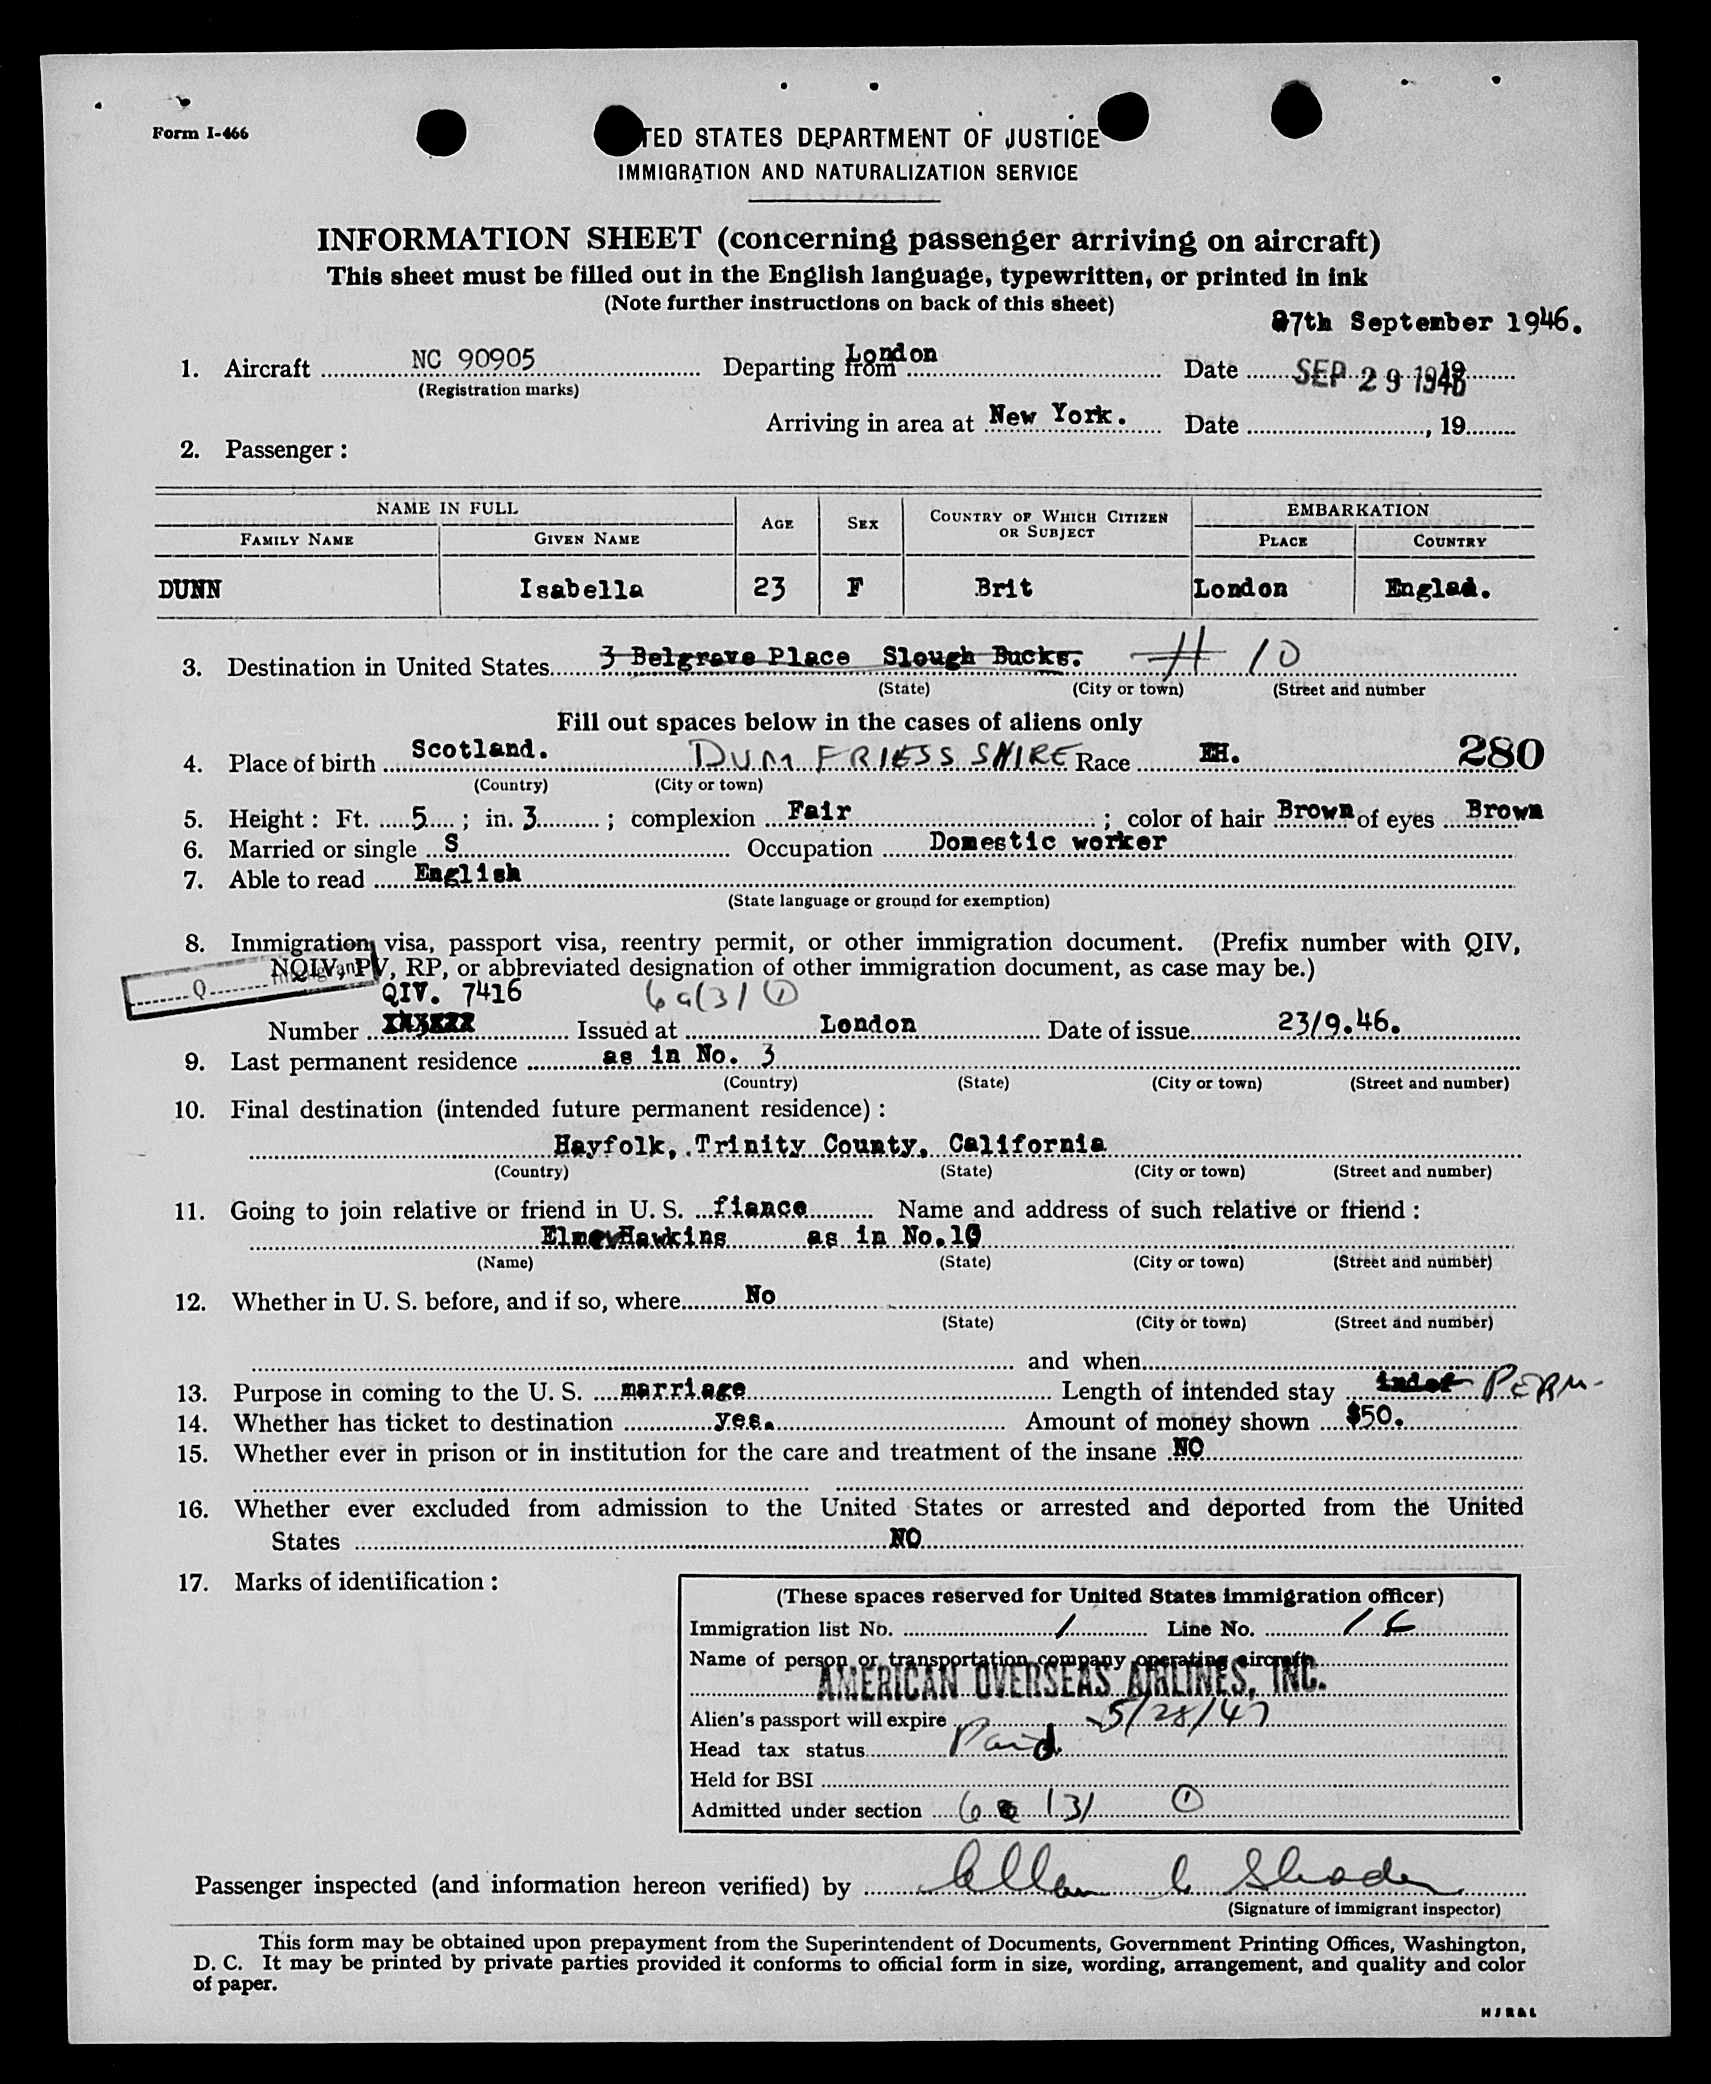 Form I-466
TED STATES DEPARTMENT OF JUSTICE
IMMIGRATION AND NATURALIZATION SERVICE
INFORMATION SHEET (concerning passenger arriving on aircraft)
This sheet must be filled out in the English language, typewritten, or printed in ink
(Note further instructions on back of this sheet)
27th September 1946.
1. Aircraft NC 90905 Departing from London Date SEP 29 1946
(Registration marks)
Arriving in area at New York. Date , 19
2. Passenger :
NAME IN FULL AGE SEX COUNTRY OF WHICH CITIZEN OR SUBJECT EMBARKATION
FAMILY NAME GIVEN NAME PLACE COUNTRY
DUNN Isabella 23 F Brit London Englad.
3. Destination in United States 3 Belgrave Place Slough Bucks. # 10
(State) (City or town) (Street and number
Fill out spaces below in the cases of aliens only
4. Place of birth Scotland. DUMFRIESSSHIRE Race EH. 280
(Country) (City or town)
5. Height : Ft. 5 ; in. 3 ; complexion Fair ; color of hair Brown of eyes Brown
6. Married or single S Occupation Domestic worker
7. Able to read English
(State language or ground for exemption)
8. Immigration visa, passport visa, reentry permit, or other immigration document. (Prefix number with QIV,
NQIV, PV, RP, or abbreviated designation of other immigration document, as case may be.)
Q
QIV. 7416 6a(3) (1)
Number Issued at London Date of issue 23/9.46.
9. Last permanent residence as in No. 3
(Country) (State) (City or town) (Street and number)
10. Final destination (intended future permanent residence) :
Hayfolk, Trinity County, California
(Country) (State) (City or town) (Street and number)
11. Going to join relative or friend in U. S. fiance Name and address of such relative or friend :
Hawkins as in No.10
(Name) (State) (City or town) (Street and number)
12. Whether in U. S. before, and if so, where No
(State) (City or town) (Street and number)
and when
13. Purpose in coming to the U. S. marriage Length of intended stay indef PERM-
14. Whether has ticket to destination yes. Amount of money shown $50.
15. Whether ever in prison or in institution for the care and treatment of the insane NO
16. Whether ever excluded from admission to the United States or arrested and deported from the United
States NO
17. Marks of identification :
(These spaces reserved for United States immigration officer)
Immigration list No. 1 Line No. 16
Name of person or transportation company operating aircraft
AMERICAN OVERSEAS AIRLINES, INC.
Alien's passport will expire 5/28/47
Head tax status Paid
Held for BSI
Admitted under section 6 a (3) (1)
Passenger inspected (and information hereon verified) by
(Signature of immigrant inspector)
This form may be obtained upon prepayment from the Superintendent of Documents, Government Printing Offices, Washington,
D. C. It may be printed by private parties provided it conforms to official form in size, wording, arrangement, and quality and color
of paper.